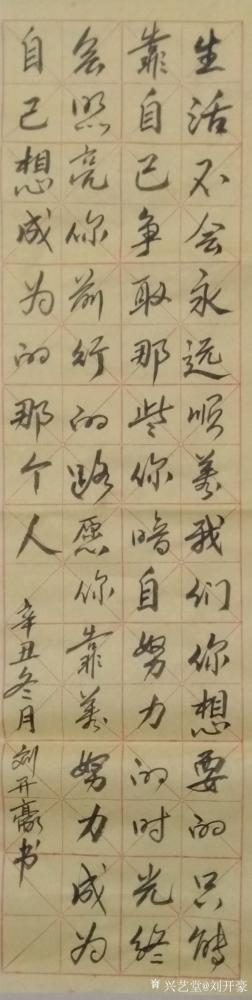 生活不会永远顺着我们你想要的只能
靠自己争取那些你暗自努力的时光终
会照亮你前行的路愿你靠着努力成为
自己想成为的那个人
辛丑冬月 刘开豪书
兴艺堂@刘开豪